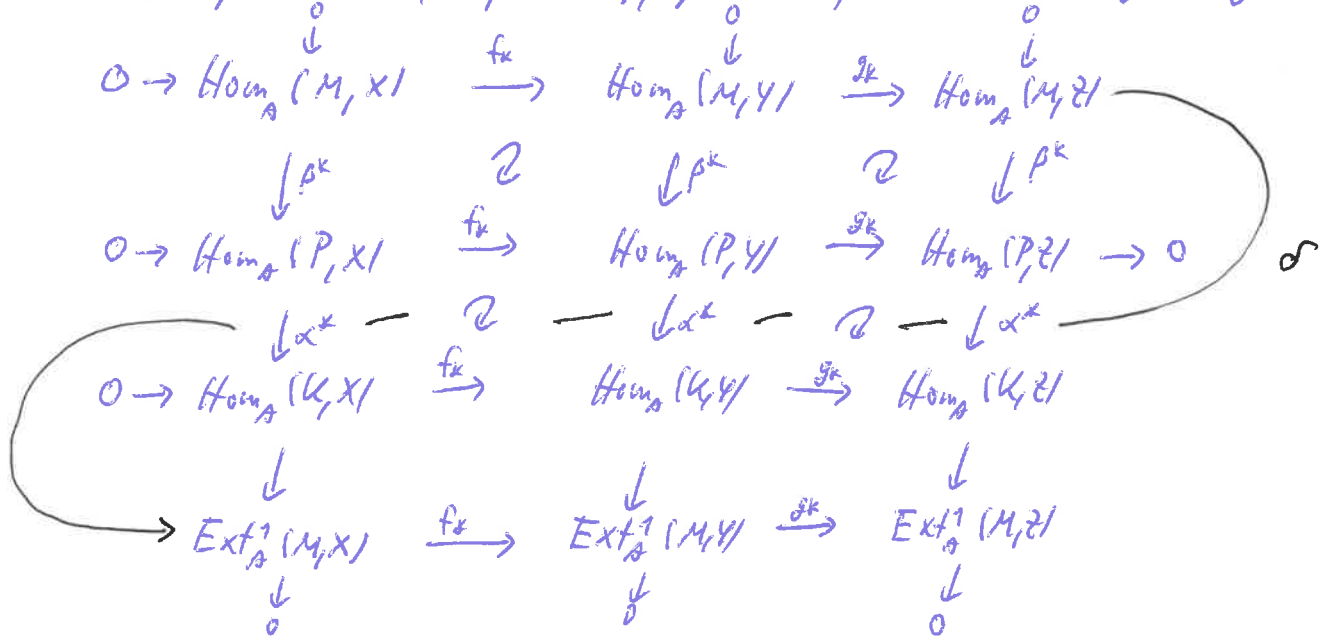 0 0 0
↓ ↓ ↓
0 → Hom_A (M, X) —f_*→ Hom_A (M, Y) —g_*→ Hom_A (M, Z)
↓ β* ↓ β* ↓ β*
0 → Hom_A (P, X) —f_*→ Hom_A (P, Y) —g_*→ Hom_A (P, Z) → 0 δ
↓ α* ↓ α* ↓ α*
0 → Hom_A (K, X) —f_*→ Hom_A (K, Y) —g_*→ Hom_A (K, Z)
↓ ↓ ↓
Ext^1_A (M, X) —f_*→ Ext^1_A (M, Y) —g_*→ Ext^1_A (M, Z)
↓ ↓ ↓
0 0 0